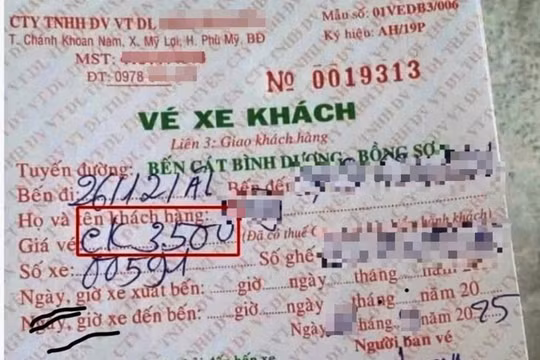 CTY TNHH DV VT DL
T. Chánh Khoan Nam, X. Mỹ Lợi, H. Phù Mỹ, BĐ
MST:
ĐT: 0978
Mẫu số: 01VEDB3/006
Ký hiệu: AH/19P
Nº 0019313
VÉ XE KHÁCH
Liên 3: Giao khách hàng
Tuyến đường: BẾN CÁT BÌNH DƯƠNG - BỒNG SƠN
Bến đi: Bến đến:
Họ và tên khách hàng:
Giá vé: CK 3500 (Đã có thuế hành khách)
Số xe: 00591 Số ghế
Ngày, giờ xe xuất bến: giờ ngày tháng năm 20
Ngày, giờ xe đến bến: giờ ngày tháng năm 2025
Người bán vé